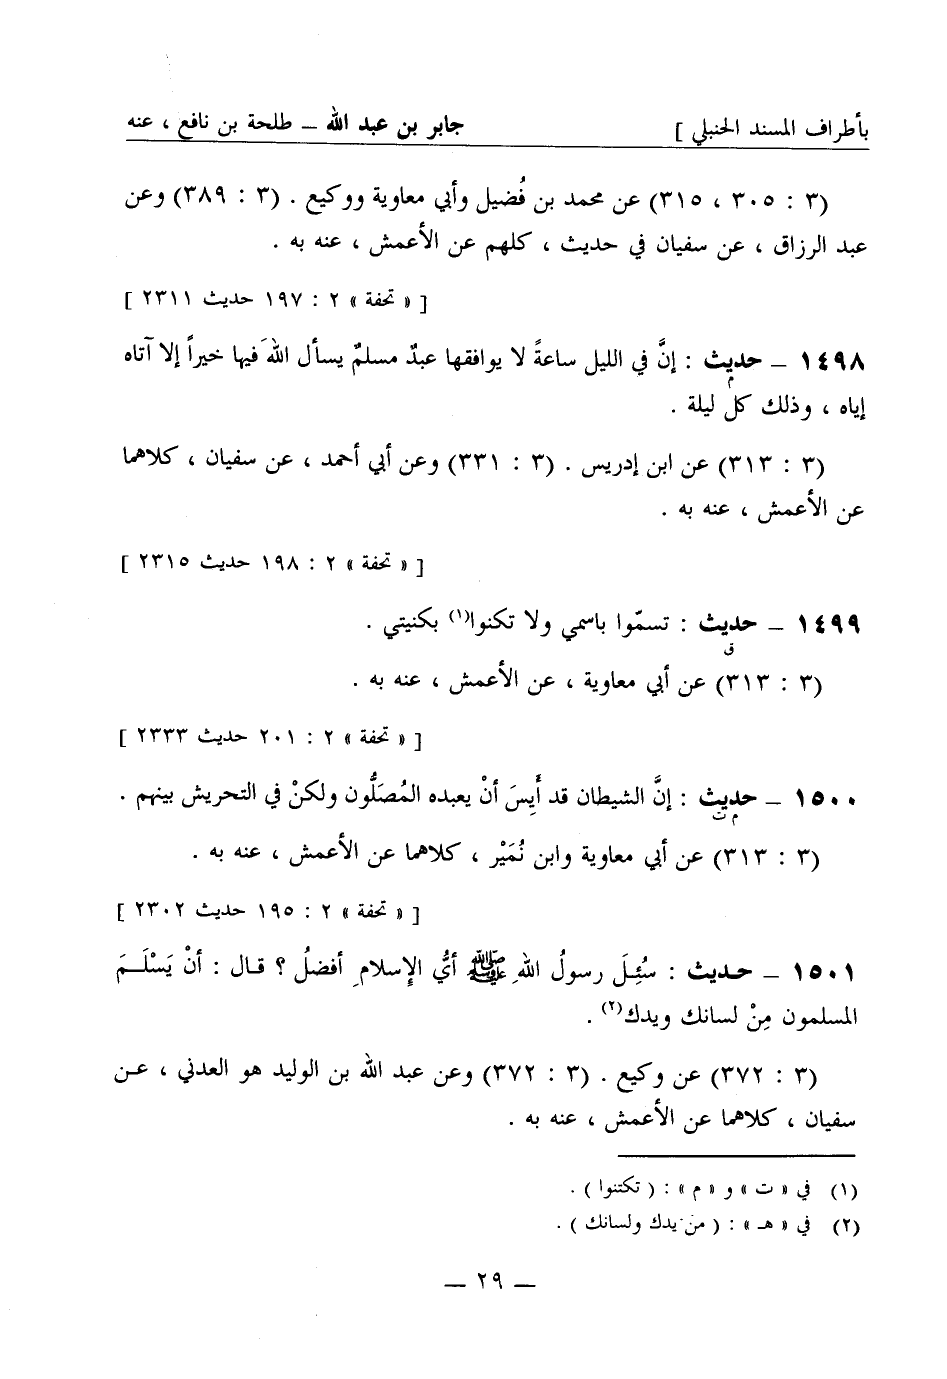 بأطراف المسند الحنبلي ] جابر بن عبد الله ــ طلحة بن نافع ، عنه
(٣ : ٣٠٥ ، ٣١٥) عن محمد بن فُضيل وأبي معاوية ووكيع . (٣ : ٣٨٩) وعن
عبد الرزاق ، عن سفيان في حديث ، كلهم عن الأعمش ، عنه به .
[ « تحفة » ٢ : ١٩٧ حديث ٢٣١١ ]
١٤٩٨ ــ حديث : إنَّ في الليل ساعةً لا يوافقها عبدٌ مسلمٌ يسأل اللهَ فيها خيراً إلا آتاه
م
إياه ، وذلك كل ليلة .
(٣ : ٣١٣) عن ابن إدريس . (٣ : ٣٣١) وعن أبي أحمد ، عن سفيان ، كلاهما
عن الأعمش ، عنه به .
[ « تحفة » ٢ : ١٩٨ حديث ٢٣١٥ ]
١٤٩٩ ــ حديث : تسمّوا باسمي ولا تكنوا(١) بكنيتي .
ق
(٣ : ٣١٣) عن أبي معاوية ، عن الأعمش ، عنه به .
[ « تحفة » ٢ : ٢٠١ حديث ٢٣٣٣ ]
١٥٠٠ ــ حديث : إنَّ الشيطان قد أَيِسَ أنْ يعبده المُصَلُّون ولكنْ في التحريش بينهم .
م ت
(٣ : ٣١٣) عن أبي معاوية وابن نُمَيْر ، كلاهما عن الأعمش ، عنه به .
[ « تحفة » ٢ : ١٩٥ حديث ٢٣٠٢ ]
١٥٠١ ــ حديث : سُئِلَ رسولُ اللهِ ﷺ أيُّ الإسلامِ أفضلُ ؟ قال : أنْ يَسْلَمَ
المسلمون مِنْ لسانك ويدك(٢) .
(٣ : ٣٧٢) عن وكيع . (٣ : ٣٧٢) وعن عبد الله بن الوليد هو العدني ، عن
سفيان ، كلاهما عن الأعمش ، عنه به .
(١) في « ت » و « م » : ( تكتنوا ) .
(٢) في « هـ » : ( من يدك ولسانك ) .
ــ ٢٩ ــ